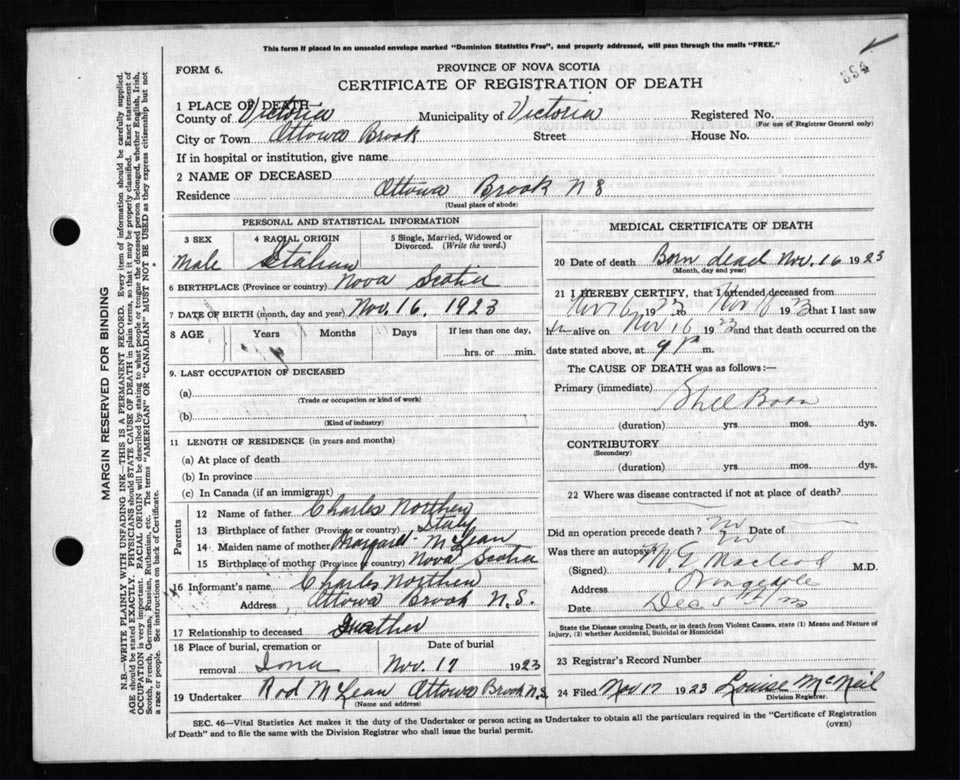 This form if placed in an unsealed envelope marked "Dominion Statistics Free", and properly addressed, will pass through the mails "FREE."
FORM 6.
PROVINCE OF NOVA SCOTIA
CERTIFICATE OF REGISTRATION OF DEATH
1 PLACE OF DEATH—
County of Victoria Municipality of Victoria Registered No.
(For use of Registrar General only)
City or Town Ottowa Brook Street House No.
If in hospital or institution, give name
2 NAME OF DECEASED
Residence Ottowa Brook N S
(Usual place of abode)
PERSONAL AND STATISTICAL INFORMATION
3 SEX 4 RACIAL ORIGIN 5 Single, Married, Widowed or Divorced. (Write the word.)
Male
6 BIRTHPLACE (Province or country) Nova Scotia
7 DATE OF BIRTH (month, day and year) Nov. 16, 1923
8 AGE Years Months Days If less than one day,
hrs. or min.
9. LAST OCCUPATION OF DECEASED
(a)
(Trade or occupation or kind of work)
(b)
(Kind of industry)
11 LENGTH OF RESIDENCE (in years and months)
(a) At place of death
(b) In province
(c) In Canada (if an immigrant)
Parents
12 Name of father Charles Northen
13 Birthplace of father (Province or country) Italy
14 Maiden name of mother Margaret McLean
15 Birthplace of mother (Province or country) Nova Scotia
16 Informant's name Charles Northen
Address Ottowa Brook N.S.
17 Relationship to deceased
18 Place of burial, cremation or removal Iona
Date of burial Nov. 17 1923
19 Undertaker Rod McLean Ottowa Brook N.S.
(Name and address)
MEDICAL CERTIFICATE OF DEATH
20 Date of death Born dead Nov. 16 1923
(Month, day and year)
21 I HEREBY CERTIFY, that I attended deceased from
Nov 16 1923 to Nov 16 1923 that I last saw
h alive on Nov 16 1923 and that death occurred on the
date stated above, at 9 P m.
The CAUSE OF DEATH was as follows:—
Primary (immediate) Still Born
(duration) yrs. mos. dys.
CONTRIBUTORY
(Secondary)
(duration) yrs. mos. dys.
22 Where was disease contracted if not at place of death?
Did an operation precede death? No Date of
Was there an autopsy? No
(Signed) Macleod M.D.
Address
Date Dec
State the Disease causing Death, or in death from Violent Causes, state (1) Means and Nature of
Injury, (2) whether Accidental, Suicidal or Homicidal
23 Registrar's Record Number
24 Filed Nov 17 1923 Louise McNeil
Division Registrar.
SEC. 46—Vital Statistics Act makes it the duty of the Undertaker or person acting as Undertaker to obtain all the particulars required in the "Certificate of Registration
of Death" and to file the same with the Division Registrar who shall issue the burial permit.
(OVER)
MARGIN RESERVED FOR BINDING
N.B.—WRITE PLAINLY WITH UNFADING INK—THIS IS A PERMANENT RECORD. Every item of information should be carefully supplied.
AGE should be stated EXACTLY. PHYSICIANS should STATE CAUSE OF DEATH in plain terms, so that it may be properly classified. Exact statement of
OCCUPATION is very important. RACIAL ORIGIN will be described by stating to what people or tongue the deceased person belonged, whether English, Irish,
Scotch, French, German, Russian, Ruthenian, etc. The terms "AMERICAN" OR "CANADIAN" MUST NOT BE USED as they express citizenship but not
a race or people. See instructions on back of Certificate.